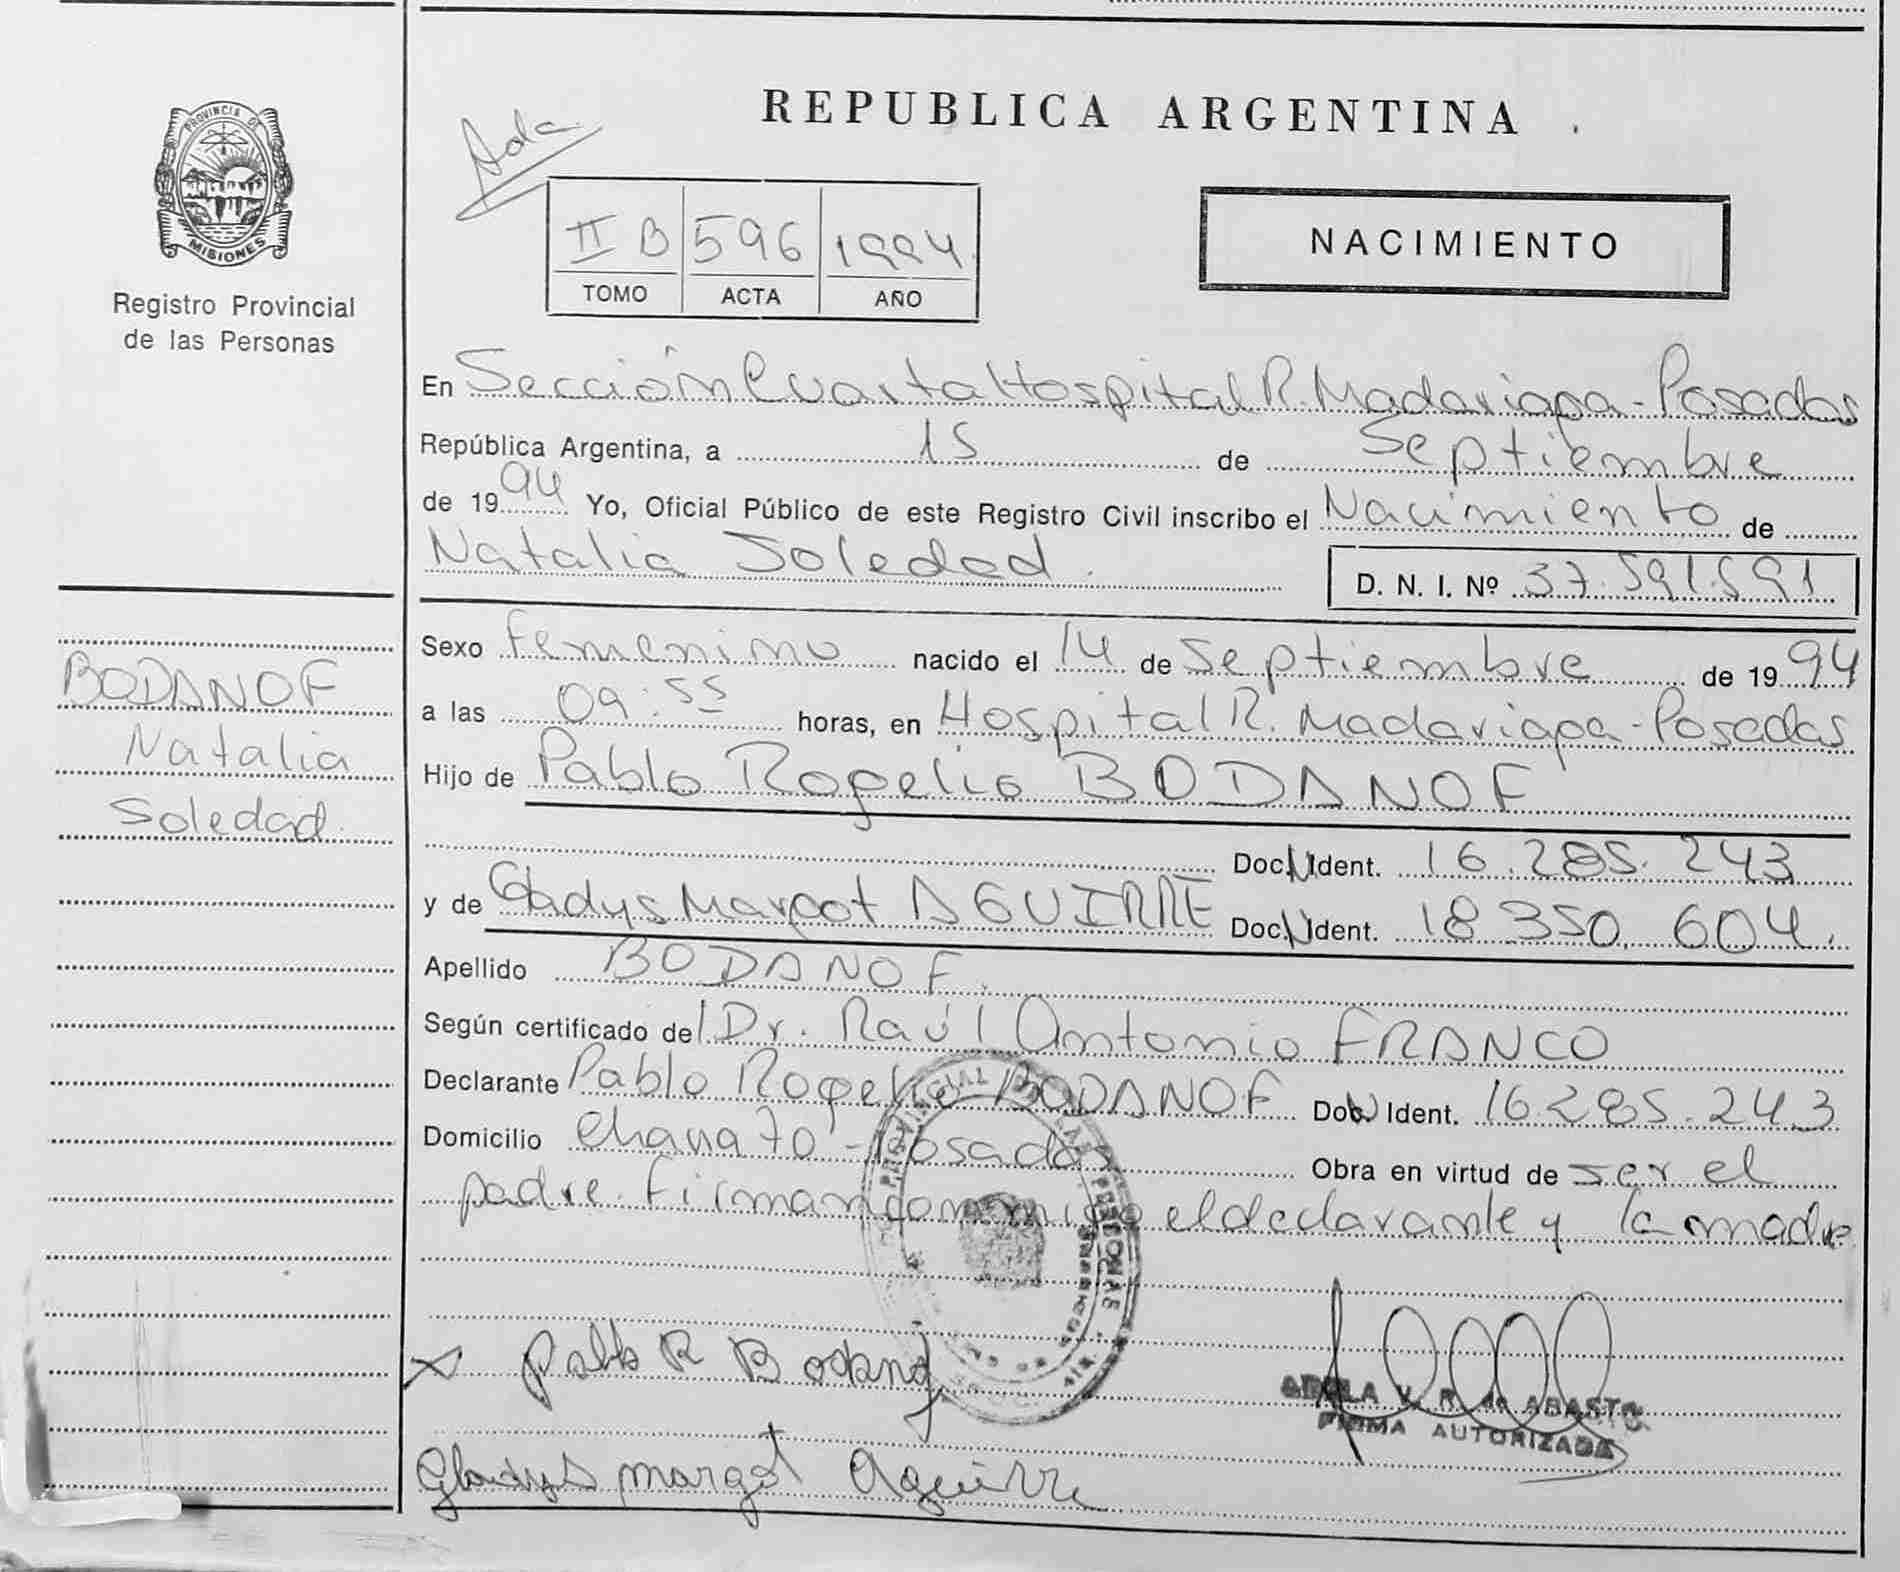 PROVINCIA DE
MISIONES
Registro Provincial
de las Personas
BODANOF
Natalia
Soledad
REPUBLICA ARGENTINA
II B 596 1994
TOMO ACTA AÑO
NACIMIENTO
En Sección Cuarta Hospital R. Madariaga - Posadas
República Argentina, a 15 de Septiembre
de 1994 Yo, Oficial Público de este Registro Civil inscribo el Nacimiento de
Natalia Soledad. D. N. I. Nº 37.591.591
Sexo Femenino nacido el 14 de Septiembre de 1994
a las 09:55 horas, en Hospital R. Madariaga - Posadas
Hijo de Pablo Rogelio BODANOF
Doc. N Ident. 16.285.243
y de Gladys Margot AGUIRRE Doc. N Ident. 18.350.604.
Apellido BODANOF.
Según certificado del Dr. Raúl Antonio FRANCO
Declarante Pablo Rogelio BODANOF Doc. N Ident. 16.285.243
Domicilio Posadas Obra en virtud de ser el
padre. Firman conmigo el declarante y la madre
Pablo R Bodanof
V. R. de ABASTO
FIRMA AUTORIZADA
Gladys margot Aguirre